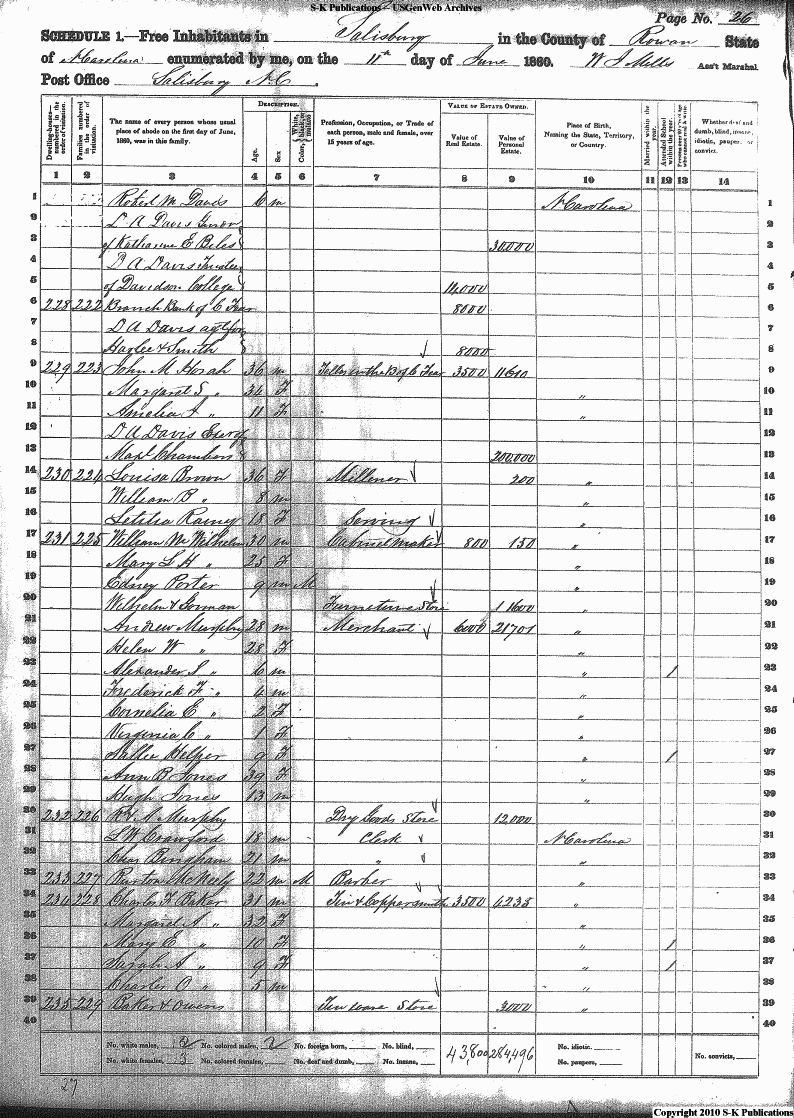 S-K Publications - USGenWeb Archives
Page No. 26
SCHEDULE 1.—Free Inhabitants in Salisbury in the County of Rowan State
of N Carolina enumerated by me, on the 11th day of June 1860. W J Mills Ass't Marshal
Post Office Salisbury N C.
Dwelling-houses—numbered in the order of visitation.
Families numbered in the order of visitation.
The name of every person whose usual place of abode on the first day of June, 1860, was in this family.
DESCRIPTION.
Age.
Sex
Color,
Profession, Occupation, or Trade of each person, male and female, over 15 years of age.
VALUE OF ESTATE OWNED.
Value of Real Estate.
Value of Personal Estate.
Place of Birth, Naming the State, Territory, or Country.
Married within the year.
Attended School within the year.
Whether deaf and dumb, blind, insane, idiotic, pauper, or convict.
1 2 3 4 5 6 7 8 9 10 11 12 13 14
1 Robert M Davis 6 m N Carolina 1
2 D A Davis 2
3 of Katharine E Biles 30,000 3
4 D A Davis Trustee 4
5 of Davidson College 14,000 5
6 228 222 Branch Bank of C Fear 8000 6
7 D A Davis agt for 7
8 Harlee & Smith 8000 8
9 229 223 John M Horah 36 m Teller in the B of C Fear 3500 11600 9
10 Margaret S " 34 F " 10
11 Amelia " 11 F " 11
12 D A Davis Exer of 12
13 Maxl Chambers 200,000 13
14 230 224 Louisa Brown 36 F Millener 200 " 14
15 William B " 8 m " 15
16 Letitia Rainey 18 F Sewing " 16
17 231 225 William M Wilhelm 30 m Cabinet maker 800 150 " 17
18 Mary L H " 25 F " 18
19 Edney Porter 9 m M " 19
20 Wilhelm & Gorman Furneture Store 1 1600 " 20
21 Andrew Murphy 28 m Merchant 6000 21701 " 21
22 Helen W " 28 F " 22
23 Alexander S " 6 m " 1 23
24 Frederick F " 4 m " 24
25 Cornelia E " 2 F " 25
26 Virginia C " 1 F " 26
27 Sallie Helper 9 F " 1 27
28 Ann B Jones 39 F " 28
29 Hugh Jones 13 m " 29
30 232 226 A Murphy Dry Goods Store 12,000 30
31 Crawford 18 m Clerk N Carolina 31
32 Chas Bingham 21 m " " 32
33 233 227 Burton McNeely 22 m M Barber " 33
34 234 228 Charles F Baker 31 m Tin & Coppersmith 3500 4235 " 34
35 Margaret A " 32 F " 35
36 Mary E " 10 F " 1 36
37 Sarah A " 9 F " 1 37
38 Charles O " 5 m " 38
39 235 229 Baker & Owens Tin ware Store 3000 " 39
40 40
No. white males, No. colored males, 2 No. foreign born, No. blind, 43,800 284,496 No. idiotic, No. convicts,
No. white females, No. colored females, No. deaf and dumb, No. insane, No. paupers,
27
Copyright 2010 S-K Publications